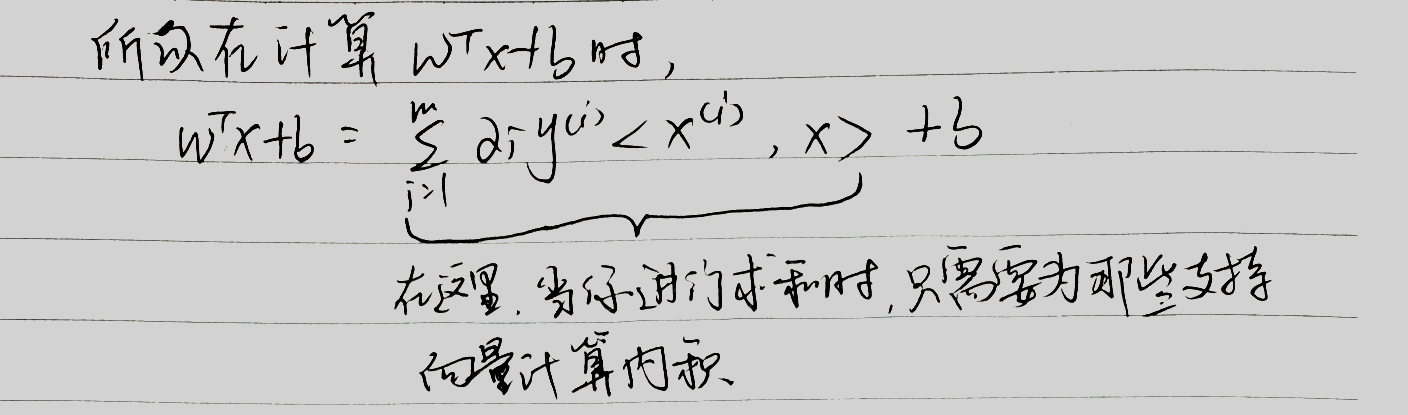 所以在计算 wᵀx+b 时,
wᵀx+b = \sum_{i=1}^{m} α_i y^{(i)} <x^{(i)}, x> + b
在这里,当你进行求和时,只需要为那些支持
向量计算内积、